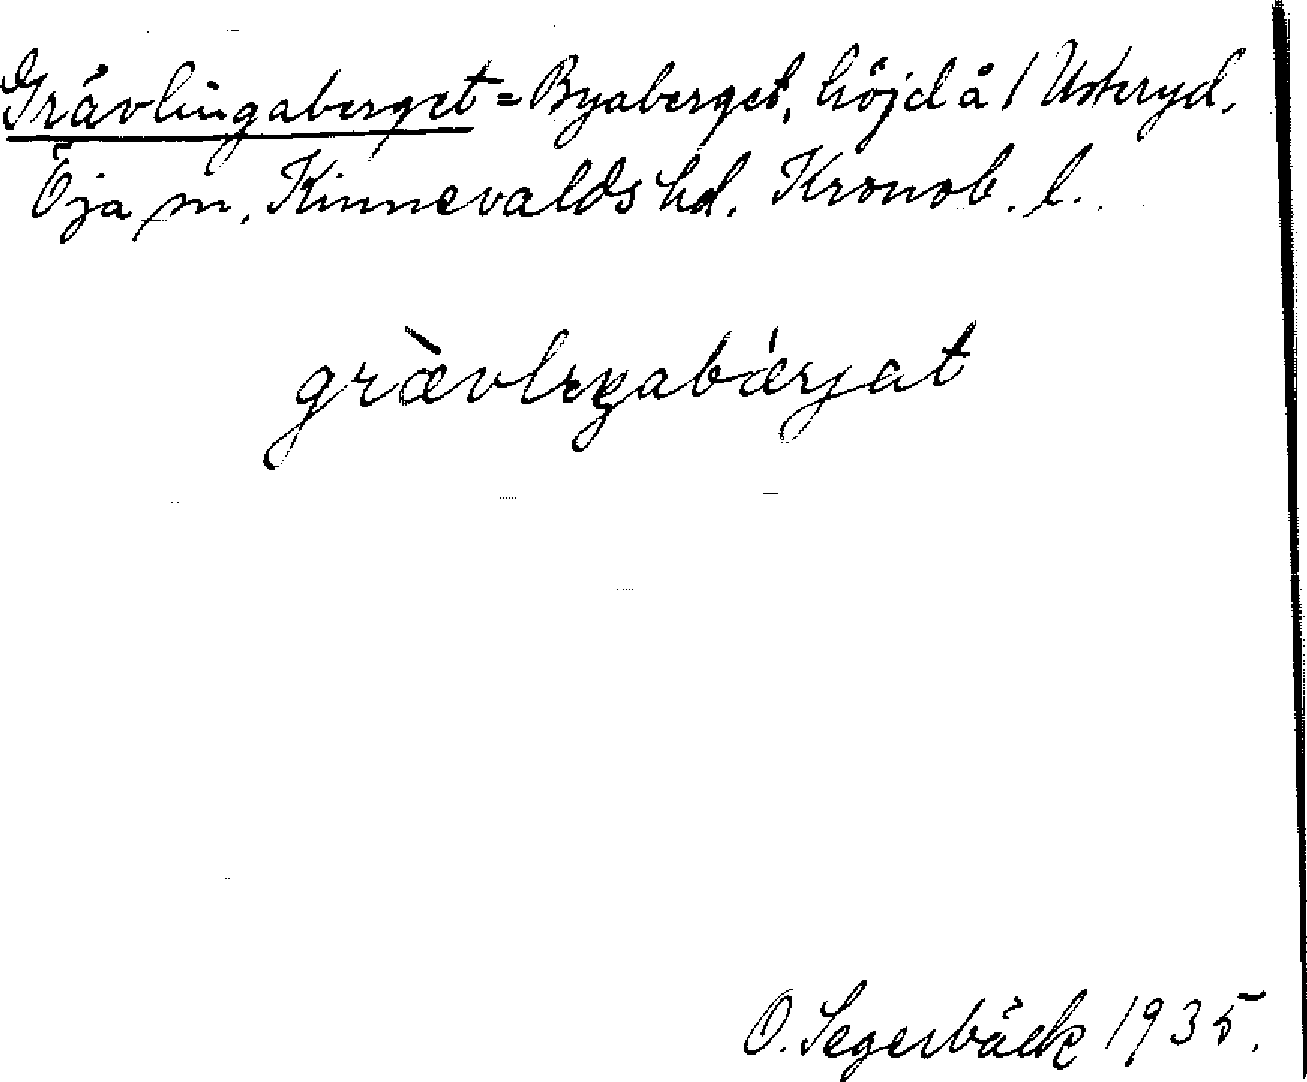 Grävlingaberget = Byaberget, höjd å 1 Usteryd,
Öja sn, Kinnevalds hd. Kronob. l.
grævlıŋabærjat
O. Segerbäck 1935.